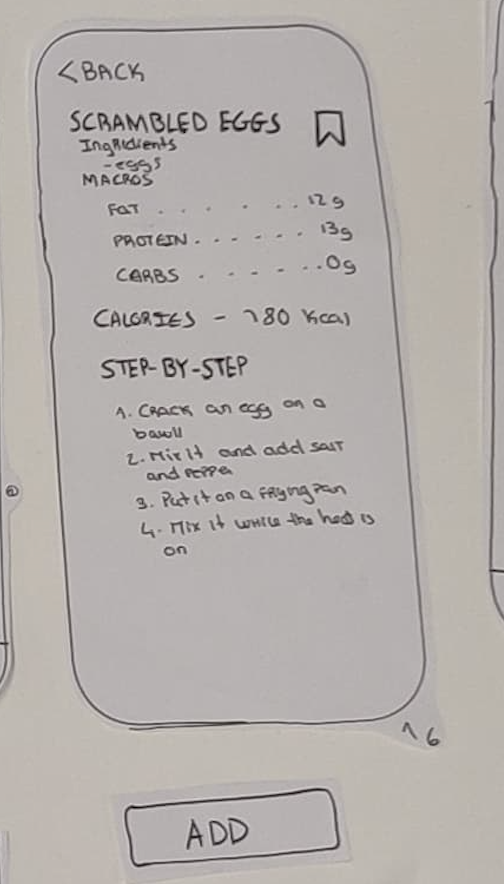 < BACK
SCRAMBLED EGGS
Ingridients
- eggs
MACROS
FAT . . . . . . 12g
PROTEIN . . . . . . 13g
CARBS . . . . . . 0g
CALORIES - 180 Kcal
STEP-BY-STEP
1. Crack an egg on a
bawll
2. Mix it and add salt
and pepper
3. Put it on a frying pan
4. Mix it while the heat is
on
16
ADD